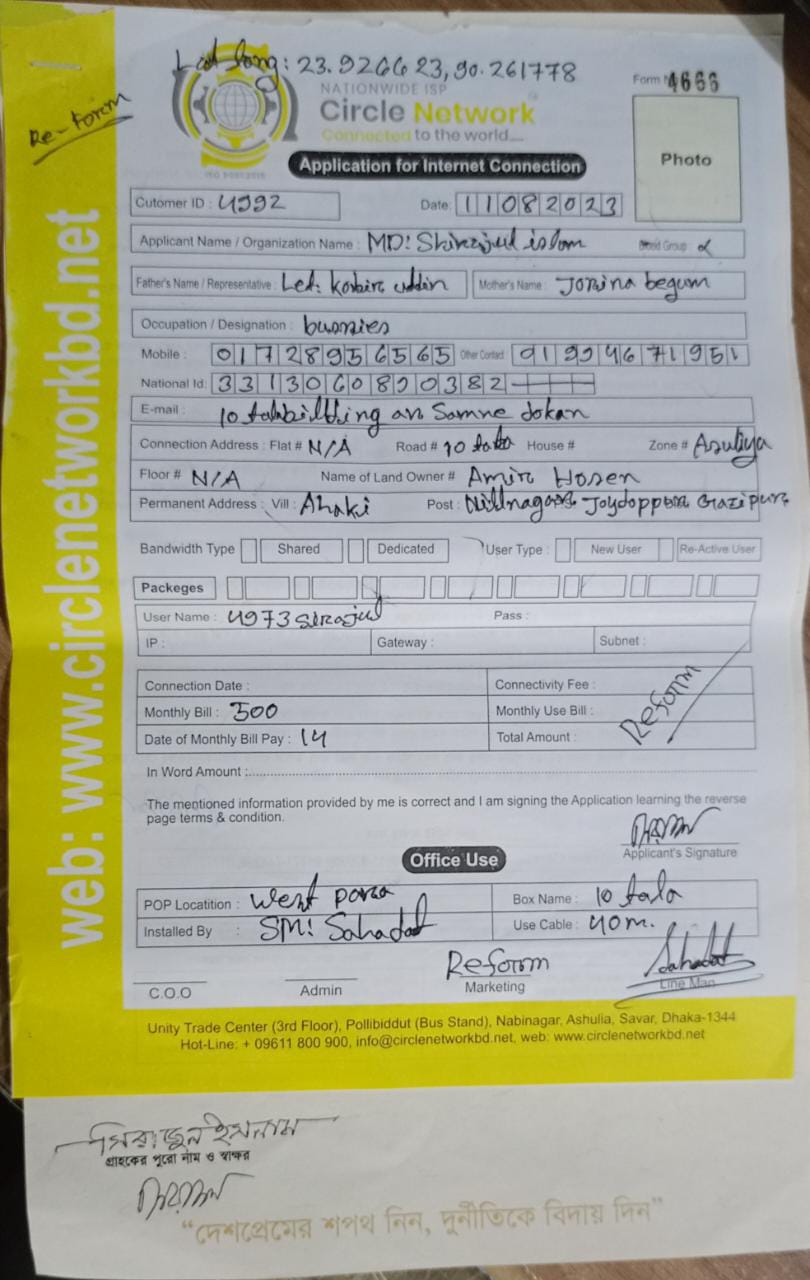 Lat long: 23.926623, 90.261778
Re-form
NATIONWIDE ISP
Circle Network
Connected to the world....
Form N 4666
Application for Internet Connection
Photo
Cutomer ID : 4992
Date: 11082023
Applicant Name / Organization Name : MD: Shirajul islam
Blood Group :
Father's Name / Representative : Let: kobir uddin
Mother's Name : Jomina begum
Occupation / Designation : busnies
Mobile : 01728956565 Other Contact 01994671951
National Id: 3313060890382
E-mail : 10 tala an Samne dokan
Connection Address : Flat # N/A Road # 10 tala House # Zone # Asuliya
Floor # N/A Name of Land Owner # Amir Hosen
Permanent Address : Vill : Ahaki Post : Joydoppora Gazipur
Bandwidth Type Shared Dedicated User Type : New User Re-Active User
Packeges
User Name : 4973 Sirajul Pass :
IP : Gateway : Subnet :
Connection Date : Connectivity Fee :
Monthly Bill : 500 Monthly Use Bill :
Date of Monthly Bill Pay : 14 Total Amount :
Reform
In Word Amount :
The mentioned information provided by me is correct and I am signing the Application learning the reverse
page terms & condition.
Applicant's Signature
Office Use
POP Locatition : West para Box Name : 10 tala
Installed By : SM: Sahadat Use Cable : 40m.
Reform Sahadat
C.O.O Admin Marketing Line Man
Unity Trade Center (3rd Floor), Pollibiddut (Bus Stand), Nabinagar, Ashulia, Savar, Dhaka-1344
Hot-Line: + 09611 800 900, info@circlenetworkbd.net, web: www.circlenetworkbd.net
web: www.circlenetworkbd.net
সিরাজুল ইসলাম
গ্রাহকের পুরো নাম ও স্বাক্ষর
“দেশপ্রেমের শপথ নিন, দুর্নীতিকে বিদায় দিন”